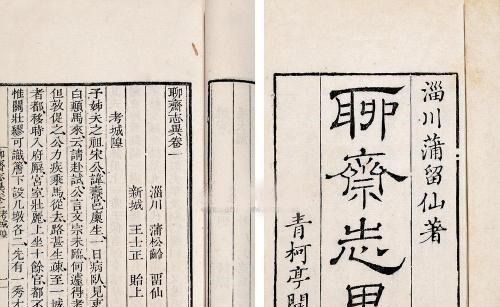 淄川蒲留仙著
聊齋志異
青柯亭開
聊齋志異卷一
淄川 蒲松齡 畱仙
新城 王士正 貽上
考城隍
予姊丈之祖宋公諱燾邑廩生一日病臥見吏
白顛馬來云請赴試公言文宗未臨何遽得考
但敦促之公力疾乘馬從去路甚生疎至一城
者都移時入府廨宮室壯麗上坐十餘官都不
惟關壯繆可識簷下設几墩各二先有一秀